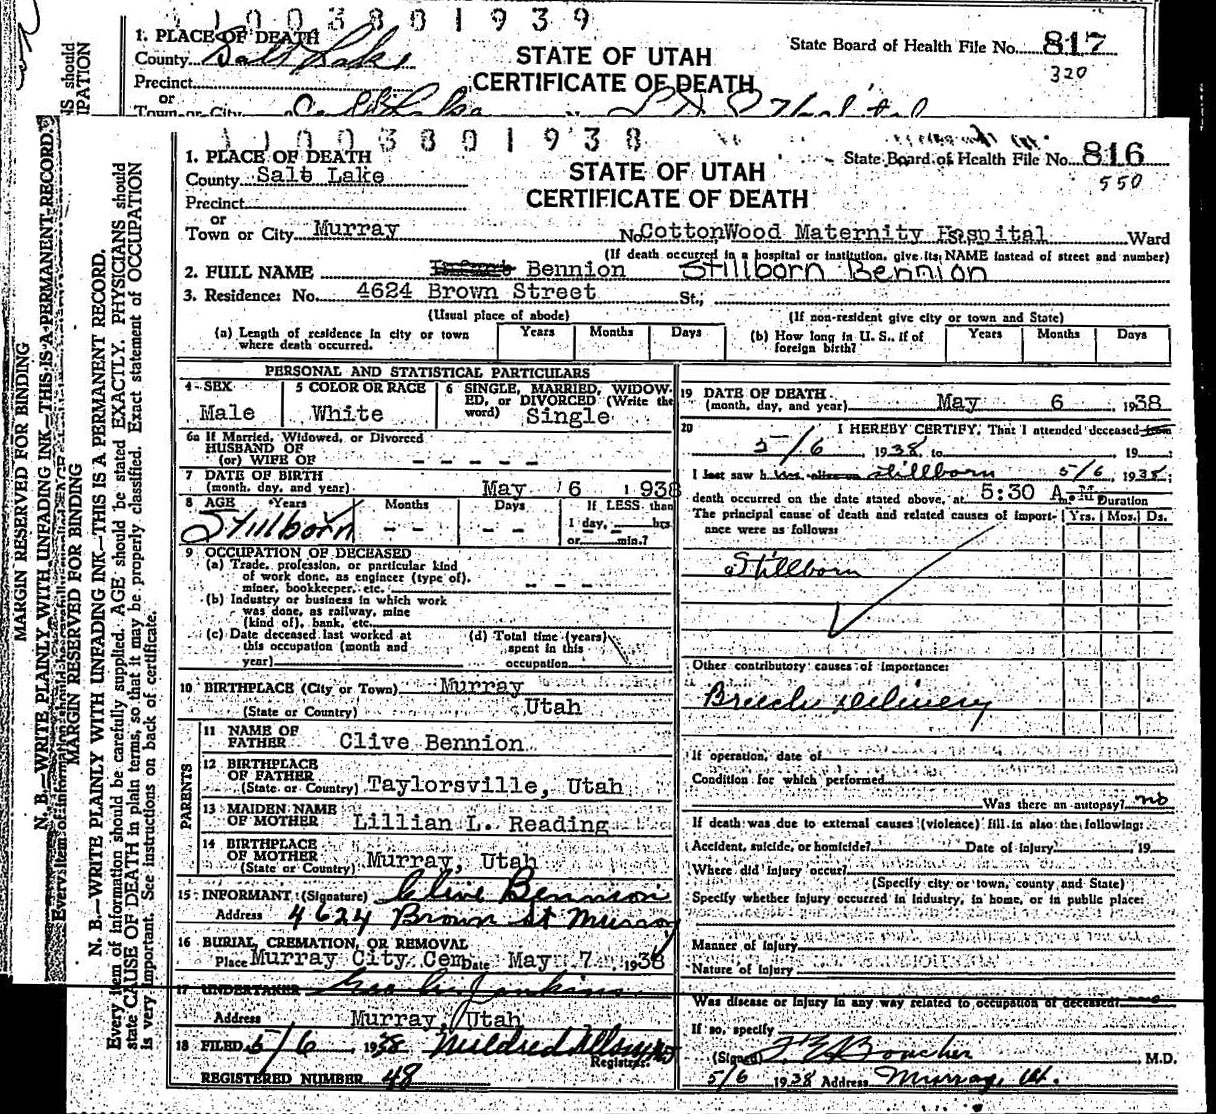 1 1 0 0 3 8 0 1 9 3 9
1. PLACE OF DEATH
County Salt Lake
STATE OF UTAH
CERTIFICATE OF DEATH
State Board of Health File No. 817
320
Precinct
or
Town or City
1 1 0 0 3 8 0 1 9 3 8
1. PLACE OF DEATH
County Salt Lake
STATE OF UTAH
CERTIFICATE OF DEATH
State Board of Health File No. 816
550
Precinct
or
Town or City Murray No. CottonWood Maternity Hospital Ward
(If death occurred in a hospital or institution, give its NAME instead of street and number)
2. FULL NAME Infant Bennion Stillborn Bennion
3. Residence: No. 4624 Brown Street St.,
(Usual place of abode) (If non-resident give city or town and State)
(a) Length of residence in city or town where death occurred. Years Months Days (b) How long in U. S., if of foreign birth? Years Months Days
PERSONAL AND STATISTICAL PARTICULARS
4 SEX Male
5 COLOR OR RACE White
6 SINGLE, MARRIED, WIDOWED, or DIVORCED (Write the word) Single
6a If Married, Widowed, or Divorced
HUSBAND OF
(or) WIFE OF - - - - -
7 DATE OF BIRTH
(month, day, and year) May 6 1938
8 AGE Years Months Days If LESS than
Stillborn - - - - 1 day, hrs.
or min.?
9 OCCUPATION OF DECEASED
(a) Trade, profession, or particular kind
of work done, as engineer (type of),
miner, bookkeeper, etc. - - -
(b) Industry or business in which work
was done, as railway, mine
(kind of), bank, etc.
(c) Date deceased last worked at
this occupation (month and
year)
(d) Total time (years)
spent in this
occupation
10 BIRTHPLACE (City or Town) Murray
(State or Country) Utah
PARENTS
11 NAME OF
FATHER Clive Bennion
12 BIRTHPLACE
OF FATHER
(State or Country) Taylorsville, Utah
13 MAIDEN NAME
OF MOTHER Lillian L. Reading
14 BIRTHPLACE
OF MOTHER
(State or Country) Murray, Utah
15 INFORMANT (Signature) Clive Bennion
Address 4624 Brown St Murray
16 BURIAL, CREMATION, OR REMOVAL
Place Murray City Cem Date May 7 1938
17 UNDERTAKER Jenkins
Address Murray, Utah
18 FILED 5/6 1938 Mildred
Registrar.
REGISTERED NUMBER 48
19 DATE OF DEATH
(month, day, and year) May 6 , 1938
20 I HEREBY CERTIFY, That I attended deceased from
5/6 , 1938, to , 19 ;
I last saw h im alive on stillborn 5/6 1938;
death occurred on the date stated above, at 5:30 A.M.
Duration
The principal cause of death and related causes of importance were as follows: Yrs. Mos. Ds.
Stillborn
Other contributory causes of importance:
Breech delivery
If operation, date of
Condition for which performed
Was there an autopsy? no
If death was due to external causes (violence) fill in also the following:
Accident, suicide, or homicide? Date of injury , 19
Where did injury occur?
(Specify city or town, county and State)
Specify whether injury occurred in industry, in home, or in public place:
Manner of Injury
Nature of Injury
Was disease or injury in any way related to occupation of deceased? no
If so, specify
(Signed) Boucher , M.D.
5/6 1938 Address Murray, Ut.
MARGIN RESERVED FOR BINDING
N. B.—WRITE PLAINLY WITH UNFADING INK—THIS IS A PERMANENT RECORD.
MARGIN RESERVED FOR BINDING
N. B.—WRITE PLAINLY WITH UNFADING INK—THIS IS A PERMANENT RECORD.
Every item of information should be carefully supplied. AGE should be stated EXACTLY. PHYSICIANS should
state CAUSE OF DEATH in plain terms, so that it may be properly classified. Exact statement of OCCUPATION
is very important. See instructions on back of certificate.